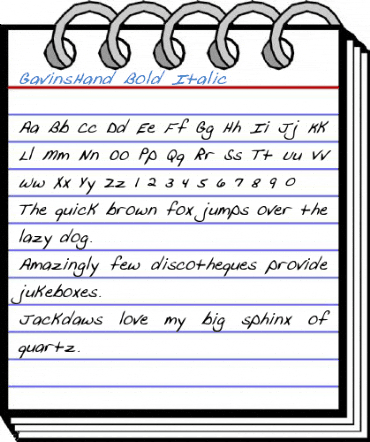 GavinsHand Bold Italic
Aa Bb Cc Dd Ee Ff Gg Hh Ii Jj Kk
Ll Mm Nn Oo Pp Qq Rr Ss Tt Uu Vv
Ww Xx Yy Zz 1 2 3 4 5 6 7 8 9 0
The quick brown fox jumps over the
lazy dog.
Amazingly few discotheques provide
jukeboxes.
Jackdaws love my big sphinx of
quartz.